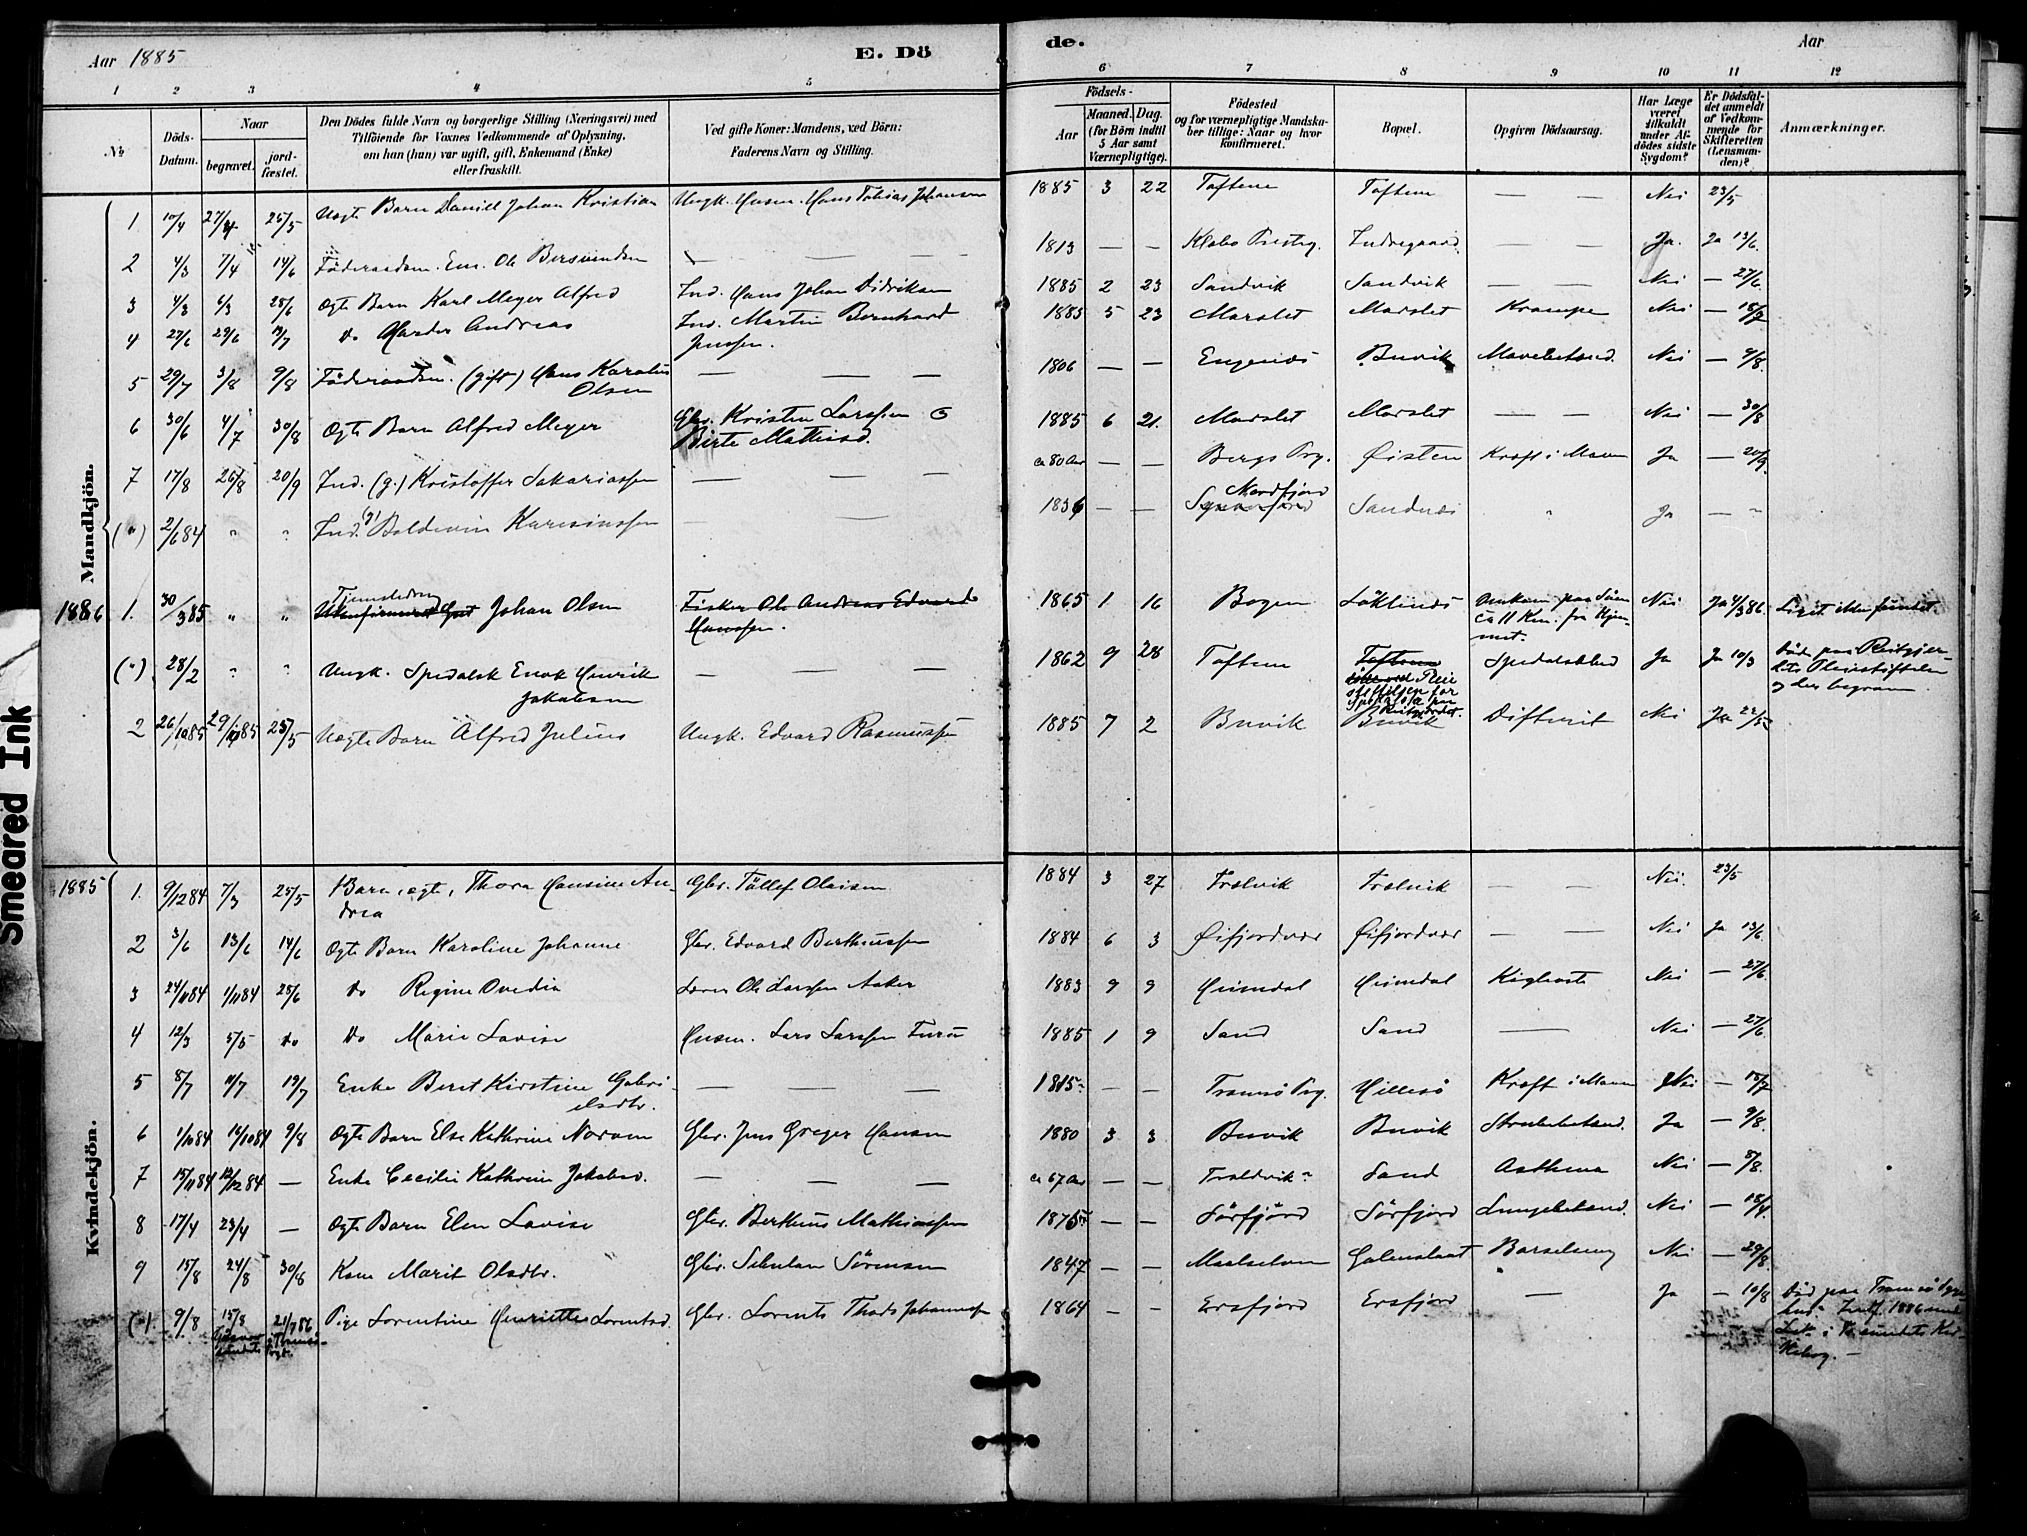 Aar 1885
E. Dö
de.
Aar
1 2 3 4 5 6 7 8 9 10 11 12
No
Döds-
Datum.
Naar
begravet.
jord-
fæstet.
Den Dödes fulde Navn og borgerlige Stilling (Næringsvei) med
Tilföiende for Voxnes Vedkommende af Oplysning,
om han (hun) var ugift, gift, Enkemand (Enke)
eller fraskilt.
Ved gifte Koner: Mandens, ved Börn:
Faderens Navn og Stilling.
Födsels-
Aar
Maaned. Dag.
(for Börn indtil
5 Aar samt
Værnepligtige).
Födested
og for værnepligtige Mandska-
ber tillige: Naar og hvor
konfirmeret.
Bopæl.
Opgiven Dödsaarsag.
Har Læge
været
tilkaldt
under Af-
dödes sidste
Sygdom?
Er Dödsfal-
det anmeldt
af Vedkom-
mende for
Skifteretten
(Lensman-
den)?
Anmærkninger.
Mandkjön.
1 10/4 27/4 25/5 Uegte Barn Daniel Johan Kristian Ungk. Husm. Hans Tobias Johansen 1885 3 22 Toftene Toftene — — Nei 23/5
2 4/3 7/4 14/6 Föderaadsm. Em. Ole — — — 1813 — — Klæbo Præstg. Indregaard — — Ja. Ja 13/6
3 4/3 6/3 28/6 Ægte Barn Karl Meyer Alfred Ind. Hans Johan Didriksen 1885 2 23 Sandvik Sandvik — — Nei — 27/6
4 27/6 29/6 19/7 Do Harder Andreas Ind. Martin Bernhard
Jenssen. 1885 5 23 Marslet Marslet Krampe Nei — 18/7
5 29/7 3/8 9/8 Föderaadsm. (gift) Hans Karolius
Olsen — — — 1806 — — Engenæs Buvik Mavebetænd. Nei — 9/8
6 30/6 4/7 30/8 Ægte Barn Alfred Meyer Gbr. Kristen Larssen o
Birte Mathisd. 1885 6 21 Marslet Marslet — — Nei — 30/8
7 17/8 26/8 20/9 Ind. (g.) Kristoffer Sakariassen — — ca 80 Aar — — Bergs Prg. Öisten Kræft i Maven Ja — 20/9
(") 2/6 84 " " Ind. (g) Baldevin — — 1836 — — Nordfjord Sandnæs " Ja — "
1886 1. 30/3 85 " " Tjenestedreng Johan Olsen Fisker Ole Andreas Edvard
Hanssen. 1865 1 16 Bogen Löklinæs Omkom paa Söen
ca 11 Km. fra Hjem-
met. Nei Ja 4/3 86 Liget ikke fundet.
(") 28/2 " " Ungk. Spedalsk Enok Henrik
Jakobsen — — — 1862 9 28 Toftene Toftene
Pleie
stiftelsen for
Spedalske paa
Reitgjærdet. Spedalskhed Ja Ja 10/3 Död paa Reitgjær-
dets Pleiestiftelse
og der begraven.
2 26/10 85 29/10 85 25/5 Uægte Barn Alfred Julius Ungk. Edvard Rasmussen 1885 7 2 Buvik Buvik Difterit Nei Ja 22/5
Kvindekjön.
1885 1. 9/12 84 7/3 25/5 Barn, ægte, Thora Hansine An-
drea Gbr. Tollef Olaisen 1884 3 27 Trælvik Trælvik — — Nei. 23/5
2 3/6 13/6 14/6 Ægte Barn Karoline Johanne Gbr. Edvard Berthiussen 1884 6 3 Öifjordvær Öifjordvær — — Nei Ja 13/6
3 24/11 84 1/11 84 28/6 Do Regine Ovedia Lærer Ole Larssen Aaker 1883 9 9 Heimdal Heimdal Kighoste Nei — 27/6
4 12/3 5/5 do Do Marie Lovise Husm. Lars Larssen Furu 1885 1 9 Sand Sand — Nei — 27/6
5 8/7 11/7 19/7 Enke Berit Kirstine Gabri-
elsdtr. — — — 1815 — — Tromsö Prg. Hillesö Kræft i Maven Nei — 18/7
6 1/10 84 14/10 84 9/8 Ægte Barn Else Kathrine Norum Gbr. Jens Greger Hansen 1880 3 3 Buvik Buvik Strubebetænd. Ja — 9/8
7 15/11 84 12/12 84 — Enke Cecilie Kathrine Jakobsd. — — — ca 67 Aar — — Traldvik Sand Asthma Nei — 8/8
8 17/4 23/4 — Ægte Barn Elen Lovise Gbr. Berthius Mathiassen 1875 — — Sörfjord Sörfjord Lungebetænd. Nei — 18/4
9 15/8 24/8 30/8 Kone Marit Olsdtr. Gbr. Sören­sen 1847 — — Maalselven Barselseng Nei — 29/8
(") 9/8 15/8 21/7 86 Pige Lorentine Henriette Lorentsd. Gbr. Lorents Thods Johannessen 1864 — — Ersfjord Ersfjord — Ja — 10/8 Död paa Tromsö Syge-
hus.